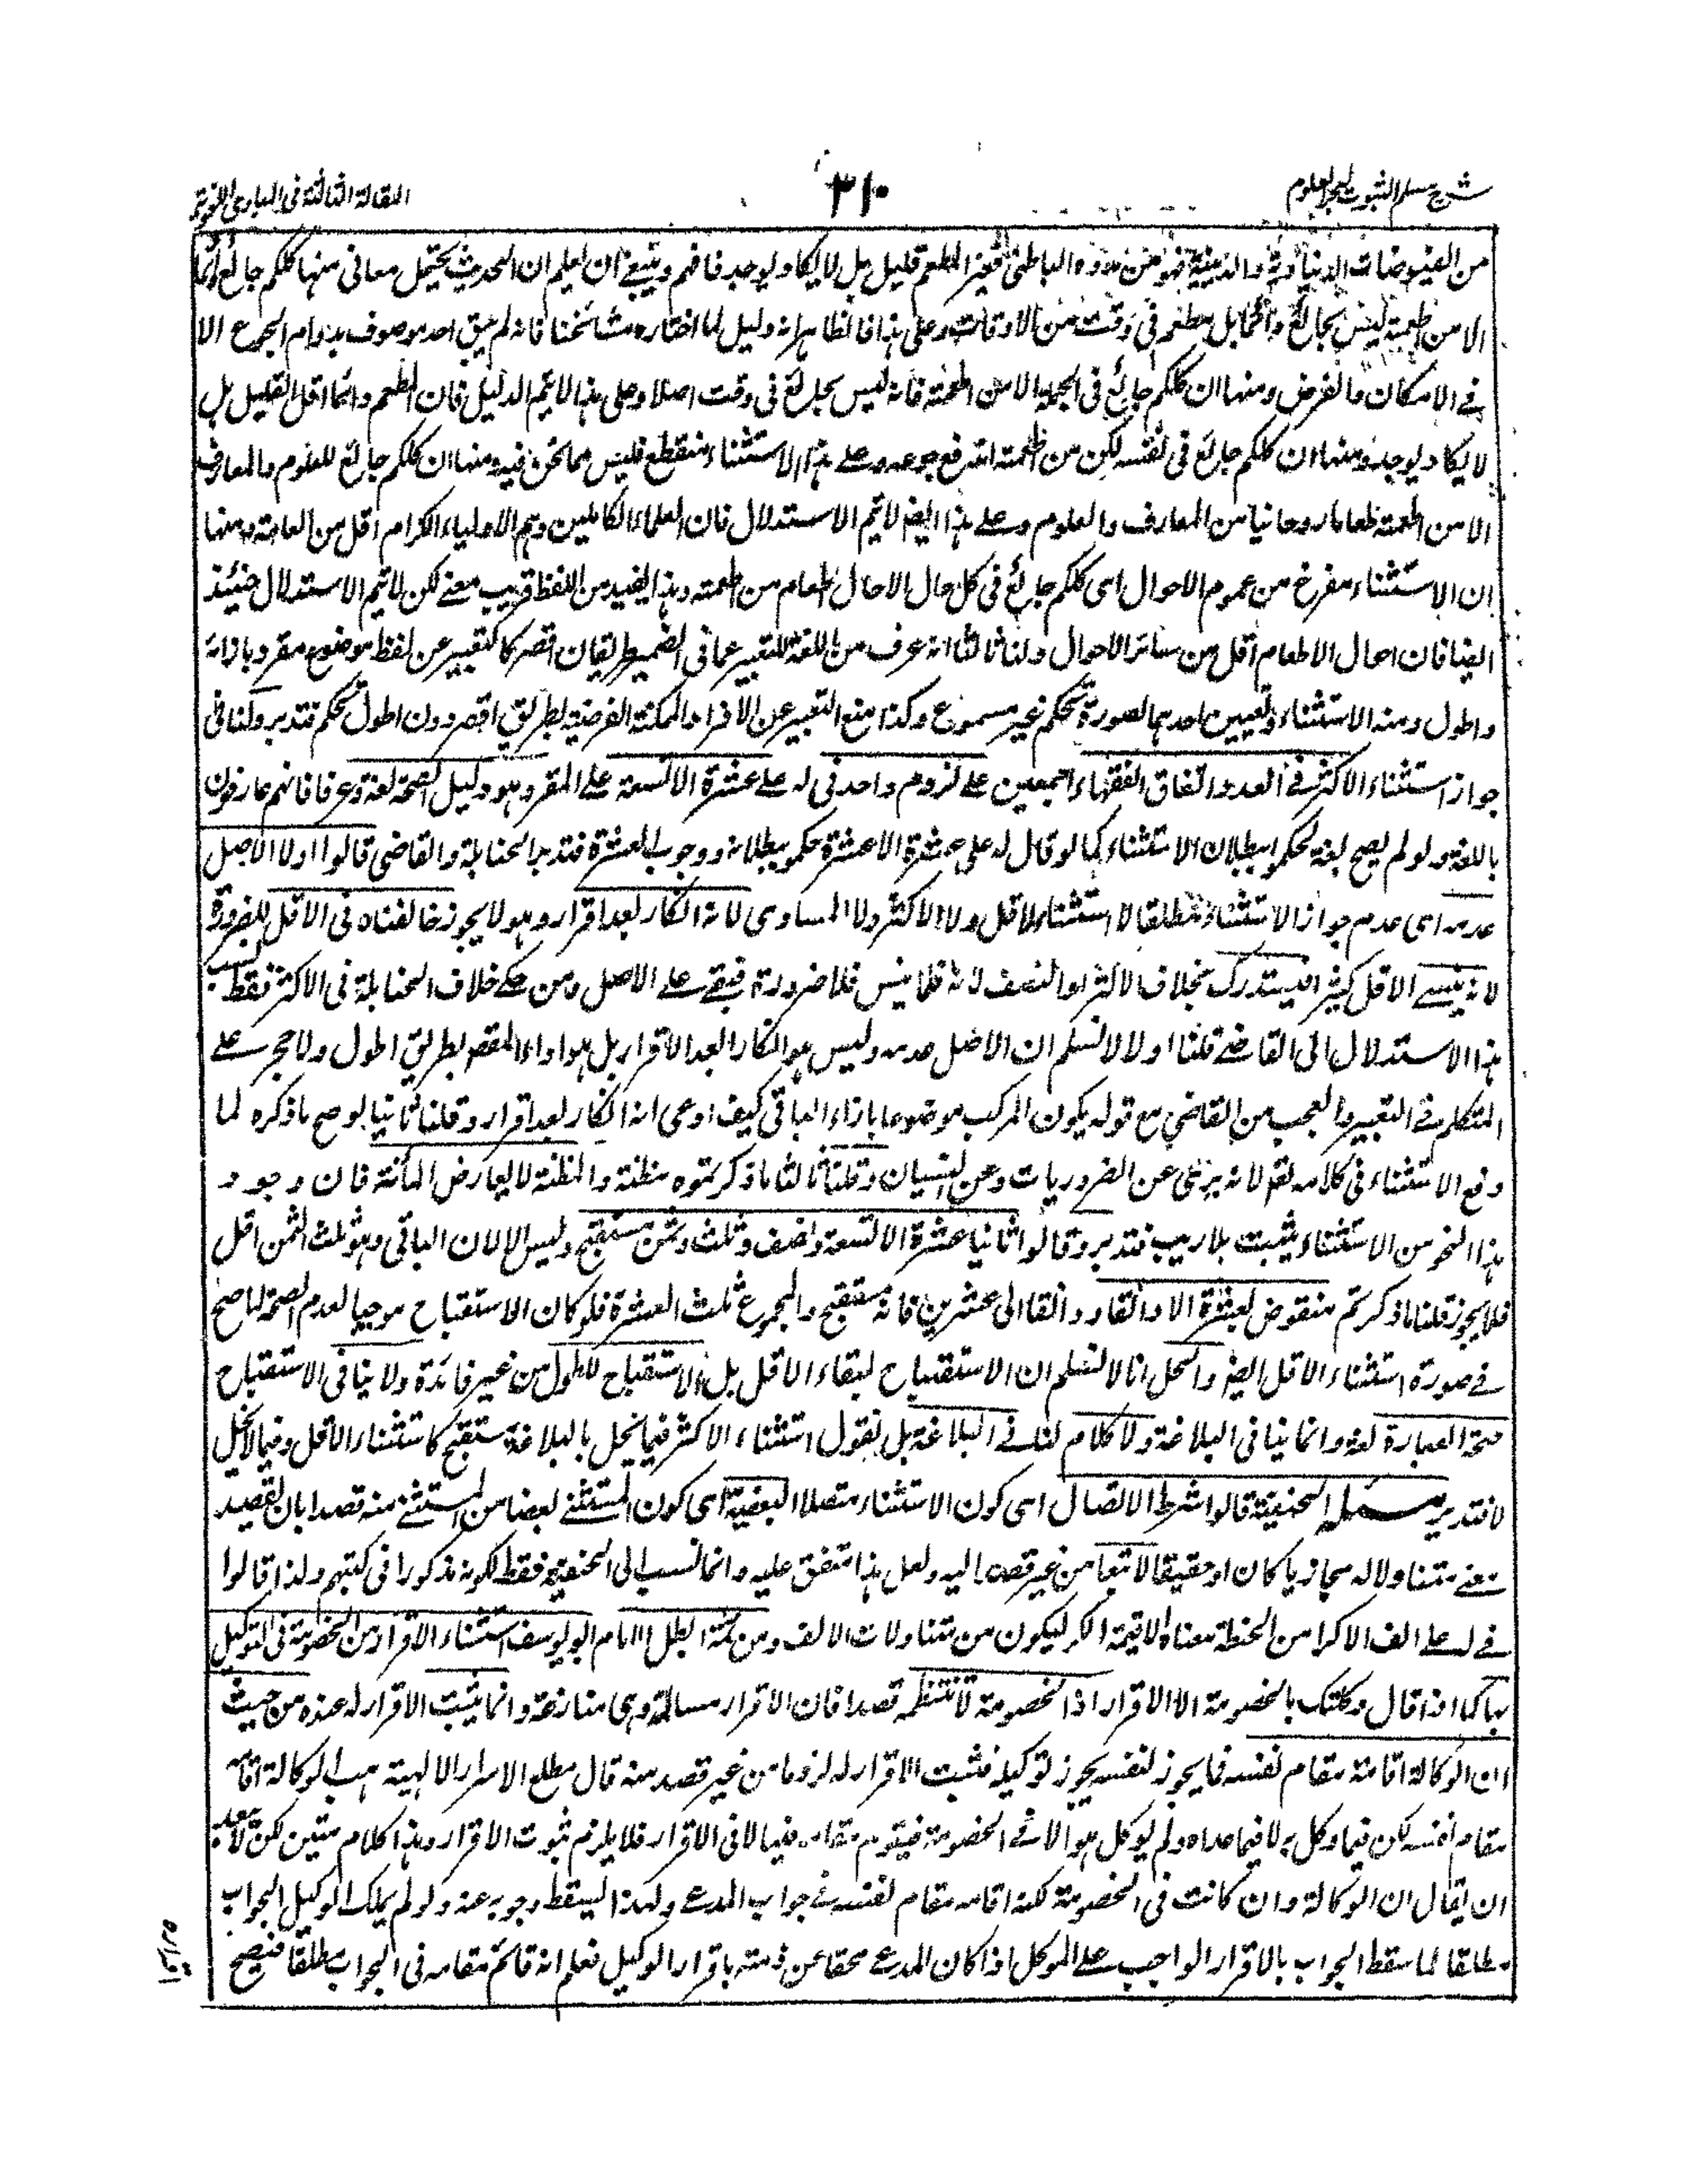 شرح مسلم الثبوت لبحر العلوم
٣١٠
المقالة الثالثة فى المبادى اللغوية
من الفيوضات الدنياوية والدينية فهو من مدده الباطنى فغير المطعم قليل بل لا يكاد يوجد فافهم وينبغى ان يعلم ان الحديث يحتمل معانى منها كلكم جائع دائما
الا من اطعمته ليس بجائع دائما بل يطعم فى وقت من الاوقات وعلى هذا فالظاهر انه دليل لما اختاره مشائخنا فانه لم يبق احد موصوف بدوام الجوع الا
فى الامكان والفرض ومنها ان كلكم جائع فى الجملة الا من اطعمته فانه ليس بجائع فى وقت اصلا وعلى هذا لا يتم الدليل فان المطعم دائما اقل القليل بل
لا يكاد يوجد ومنها ان كلكم جائع فى نفسه لكن من اطعمته اندفع جوعه وعلى هذا الاستثناء منقطع فليس مما نحن فيه ومنها ان كلكم جائع للعلوم والمعارف
الا من اطعمته طعاما روحانيا من المعارف والعلوم وعلى هذا ايضا لا يتم الاستدلال فان العلماء الكاملين وهم الاولياء الكرام اقل من العامة ومنها
ان الاستثناء مفرغ من عموم الاحوال اى كلكم جائع فى كل حال الا حال اطعام من اطعمته وهذا ابعد من اللفظ قريب معنى لكن لا يتم الاستدلال حينئذ
ايضا فان احوال الاطعام اقل من سائر الاحوال ولنا ثالثا انه عرف من اللغة للتعبير عما فى الضمير طريقان اقصر كالتعبير عن لفظ موضوع مفرد بازائه
واطول ومنه الاستثناء وتعيين احدهما لصورة تحكم غير مسموع وكذا منع التعبير عن الافراد الممكنة الفرضية بطريق اقصر دون اطول تحكم فتدبر ولنا فى
جواز استثناء الاكثر فى العدد اتفاق الفقهاء اجمعين على لزوم واحد فى له على عشرة الا تسعة على المقر وهو دليل الصحة لغة وعرفا فانهم عارفون
باللغة ولو لم يصح لغة لحكموا ببطلان الاستثناء كما لو قال له على عشرة الا عشرة حكموا ببطلانه ووجوب العشرة فتدبر الحنابلة والقاضى قالوا اولا الاصل
عدمه اى عدم جواز الاستثناء مطلقا لا استثناء الاقل ولا الاكثر ولا المساوى لانه انكار بعد اقرار وهو لا يجوز خالفناه فى الاقل للضرورة
لانه ينسى الاقل كثيرا فيستدرك بخلاف الاكثر او النصف لانه قلما ينسى فلا ضرورة فيبقى على الاصل ومن حكى خلاف الحنابلة فى الاكثر فقط نسب
هذا الاستدلال الى القاضى قلنا اولا لا نسلم ان الاصل عدمه وليس هو انكارا بعد الاقرار بل هو اداء المقصود بطريق اطول ولا حجر على
المتكلم فى التعبير والعجب من القاضى مع قوله بكون المركب موضوعا بازاء الباقى كيف ادعى انه انكار بعد اقرار وقلنا ثانيا لو صح ما ذكره لما
وقع الاستثناء فى كلامه تعالى لانه برئ عن الضروريات وعن النسيان وقلنا ثالثا ما ذكرتموه مظنة والمظنة لا يعارض المأنة فان وجود
هذا النحو من الاستثناء يثبت بلا ريب فتدبر وقالوا ثانيا عشرة الا تسعة ونصف وثلث وثمن مستقبح وليس الا لان الباقى وهو ثلث الثمن اقل
فلا يجوز قلنا ما ذكرتم منقوض بعشرة الا دانقا ودانقا الى عشرين فانه مستقبح والمجموع ثلث العشرة فلو كان الاستقباح موجبا لعدم الصحة لما صح
فى صورة استثناء الاقل ايضا والحل انا لا نسلم ان الاستقباح لبقاء الاقل بل الاستقباح للطول من غير فائدة ولا ينافى الاستقباح
صحة العبارة لغة وانما ينافى البلاغة ولا كلام لنا فى البلاغة بل نقول استثناء الاكثر فيما يخل بالبلاغة مستقبح كاستثناء الاقل وفيما لا يخل
لا فتدبر مسئلة الحنفية قالوا شرط الاتصال اى كون الاستثناء متصلا البعضية اى كون المستثنى بعضا من المستثنى منه قصدا بان يقصد
معنى متناولا له مجازيا كان او حقيقيا لا تبعا من غير قصد اليه ولعل هذا متفق عليه وانما نسب الى الحنفية فقط لكونه مذكورا فى كتبهم ولذا قالوا
فى له على الف الا كرا من الحنطة معناه الا قيمة الكر ليكون من متناولات الالف ومن ثمة ابطل الامام ابو يوسف استثناء الاقرار من الخصومة فى التوكيل
بها كما اذا قال وكلتك بالخصومة الا الاقرار اذ الخصومة لا تنتظمه قصدا فان الاقرار مسالمة وهى منازعة وانما يثبت الاقرار له عنده من حيث
ان الوكالة اقامته مقام نفسه فما يجوز لنفسه يجوز لوكيله فثبت الاقرار له لزوما من غير قصد منه قال مطلع الاسرار الالهية هب الوكالة اقامة
مقام نفسه لكن فيما وكل به لا فيما عداه ولم يوكل هو الا فى الخصومة فيقوم مقامه فيها لا فى الاقرار فلا يلزم ثبوت الاقرار وهذا كلام متين لكن لا يبعد
ان يقال ان الوكالة وان كانت فى الخصومة لكنه اقامه مقام نفسه فى جواب المدعى ولهذا يسقط وجوبه عنه ولو لم يملك الوكيل الجواب
مطلقا لما سقط الجواب بالاقرار الواجب على الموكل اذا كان المدعى محقا عن ذمته باقرار الوكيل فعلم انه قائم مقامه فى الجواب مطلقا فيصح
اقراره